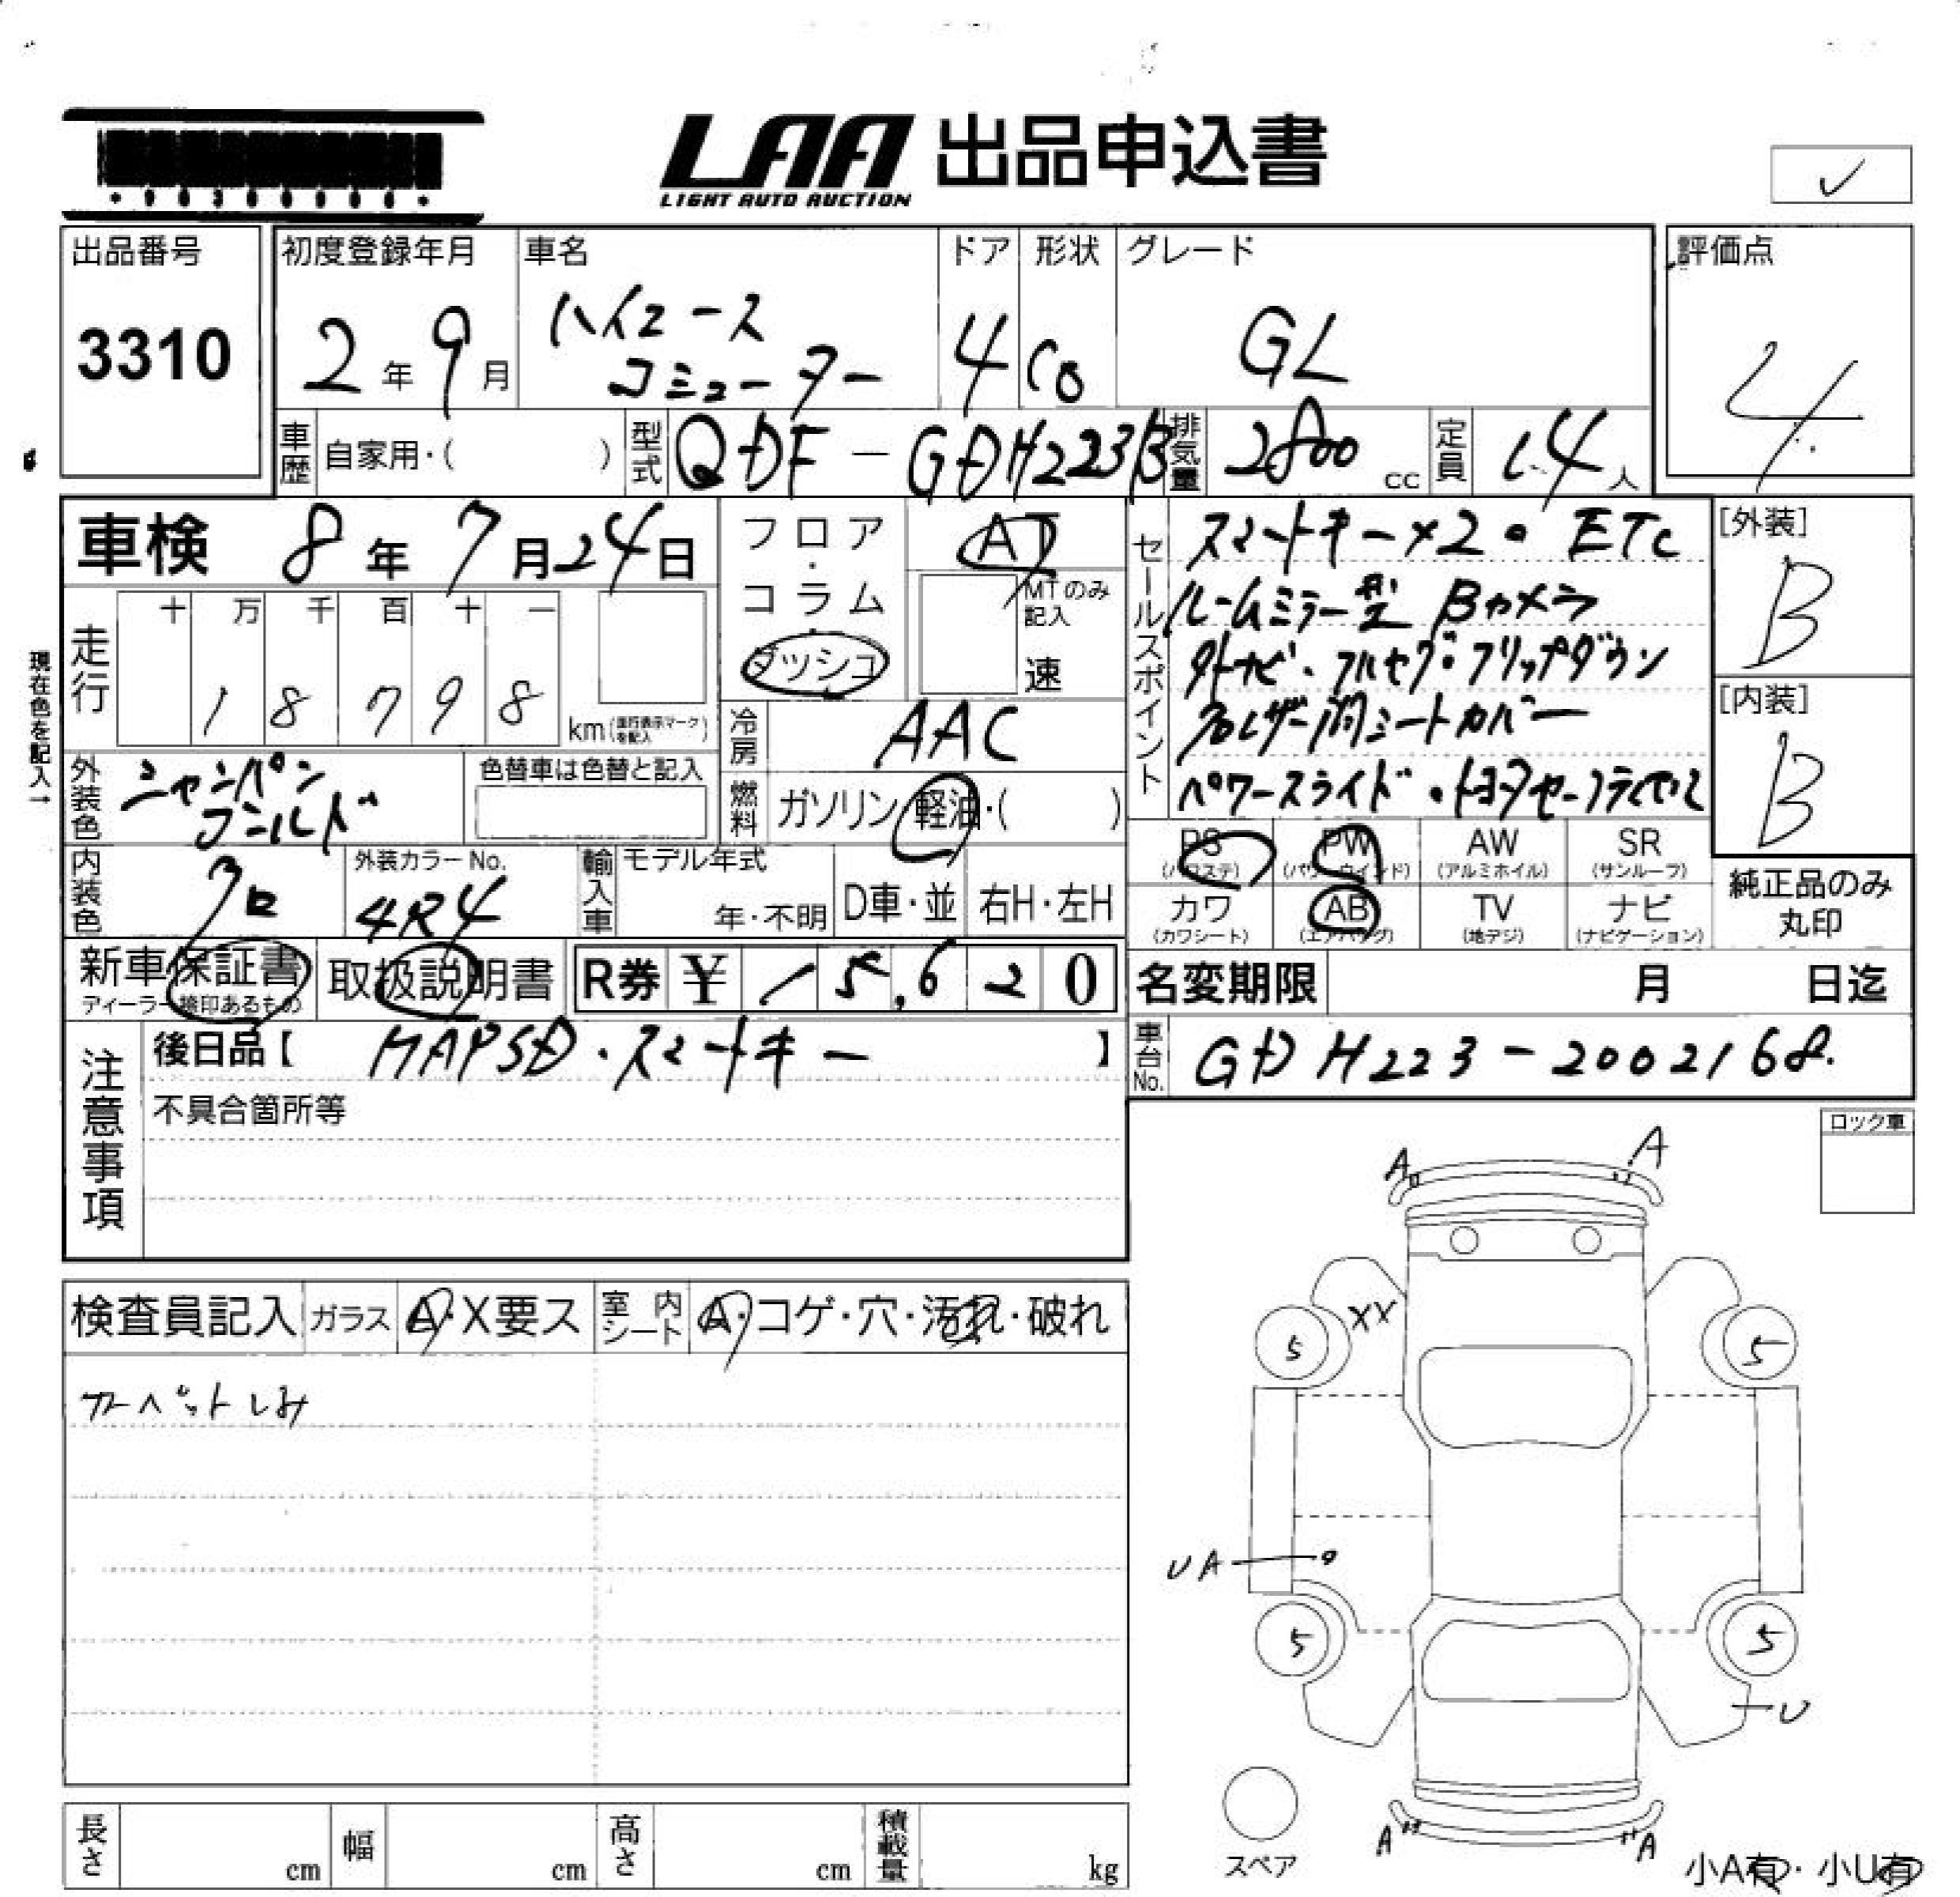 LAA 出品申込書
LIGHT AUTO AUCTION
✓
出品番号 初度登録年月 車名 ドア 形状 グレード 評価点
3310 2年 9月 ハイエース コミューター 4 Co GL 4
車歴 自家用・( ) 型式 QDF-GDH223B 排気量 2800 cc 定員 14人
車検 8年 7月 24日 フロア・コラム・ダッシュ AT
MTのみ記入 速
走行 十 万 千 百 十 一
1 8 7 9 8 km (走行表示マークを記入)
現在色を記入→
冷房 AAC
外装色 シャンパンゴールド 色替車は色替と記入
燃料 ガソリン・軽油・( )
セールスポイント
スマートキー×2・ETC
ルームミラー型 Bカメラ
外ナビ・フルセグ・フリップダウン
名レザー調シートカバー
パワースライド・トヨタセーフティセンス
[外装] B
[内装] B
PS (パワステ) PW (パワーウインド) AW (アルミホイル) SR (サンルーフ)
カワ (カワシート) AB (エアバッグ) TV (地デジ) ナビ (ナビゲーション)
純正品のみ丸印
内装色 クロ 外装カラーNo. 4R4 輸入車 モデル年式 年・不明 D車・並 右H・左H
新車保証書 ディーラー捺印あるもの 取扱説明書 R券 ¥ 15,620
名変期限 月 日迄
注意事項
後日品【 MAPSD・スマートキー 】
不具合箇所等
車台No. GDH223-2002168
ロック車
検査員記入 ガラス A・X要ス 室内シート A・コゲ・穴・汚れ・破れ
カーペットしみ
A A
XX
5 5
UA
5 5
U
スペア
A A
小A有・小U有
長さ cm 幅 cm 高さ cm 積載量 kg